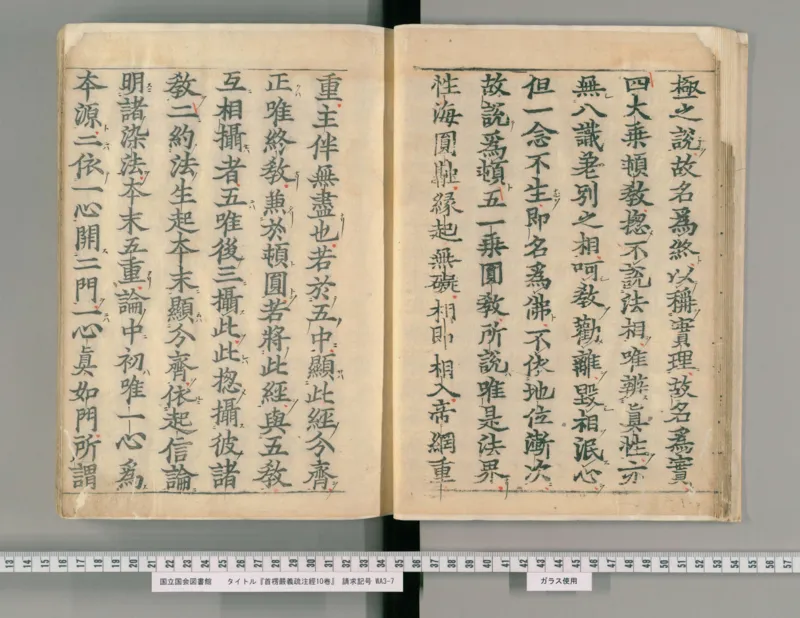 極之說故名爲終以稱實理故名爲實
四大乗頓教揔不說法相唯辨眞性亦
無八識差别之相呵教勸離毀相泯心
但一念不生即名爲佛不依地位漸次
故說爲頓五一乗圓教所說唯是法界
性海圓融緣起無礙相即相入帝網重
重主伴無盡也若於五中顯此經分齊
正唯終教兼於頓圓若將此經與五教
互相攝者五唯後三攝此此揔攝彼諸
教二約法生起本末顯分齊依起信論
明諸染法本末五重論中初唯一心爲
本源二依一心開二門一心眞如門所謂
13 14 15 16 17 18 19 20 21 22 23 24 25 26 27 28 29 30 31 32 33 34 35 36 37 38 39 40 41 42 43 44 45 46 47 48 49 50 51 52 53 54 55 56 57
国立国会図書館 タイトル『首楞嚴義疏注經10巻』 請求記号 WA3-7
ガラス使用